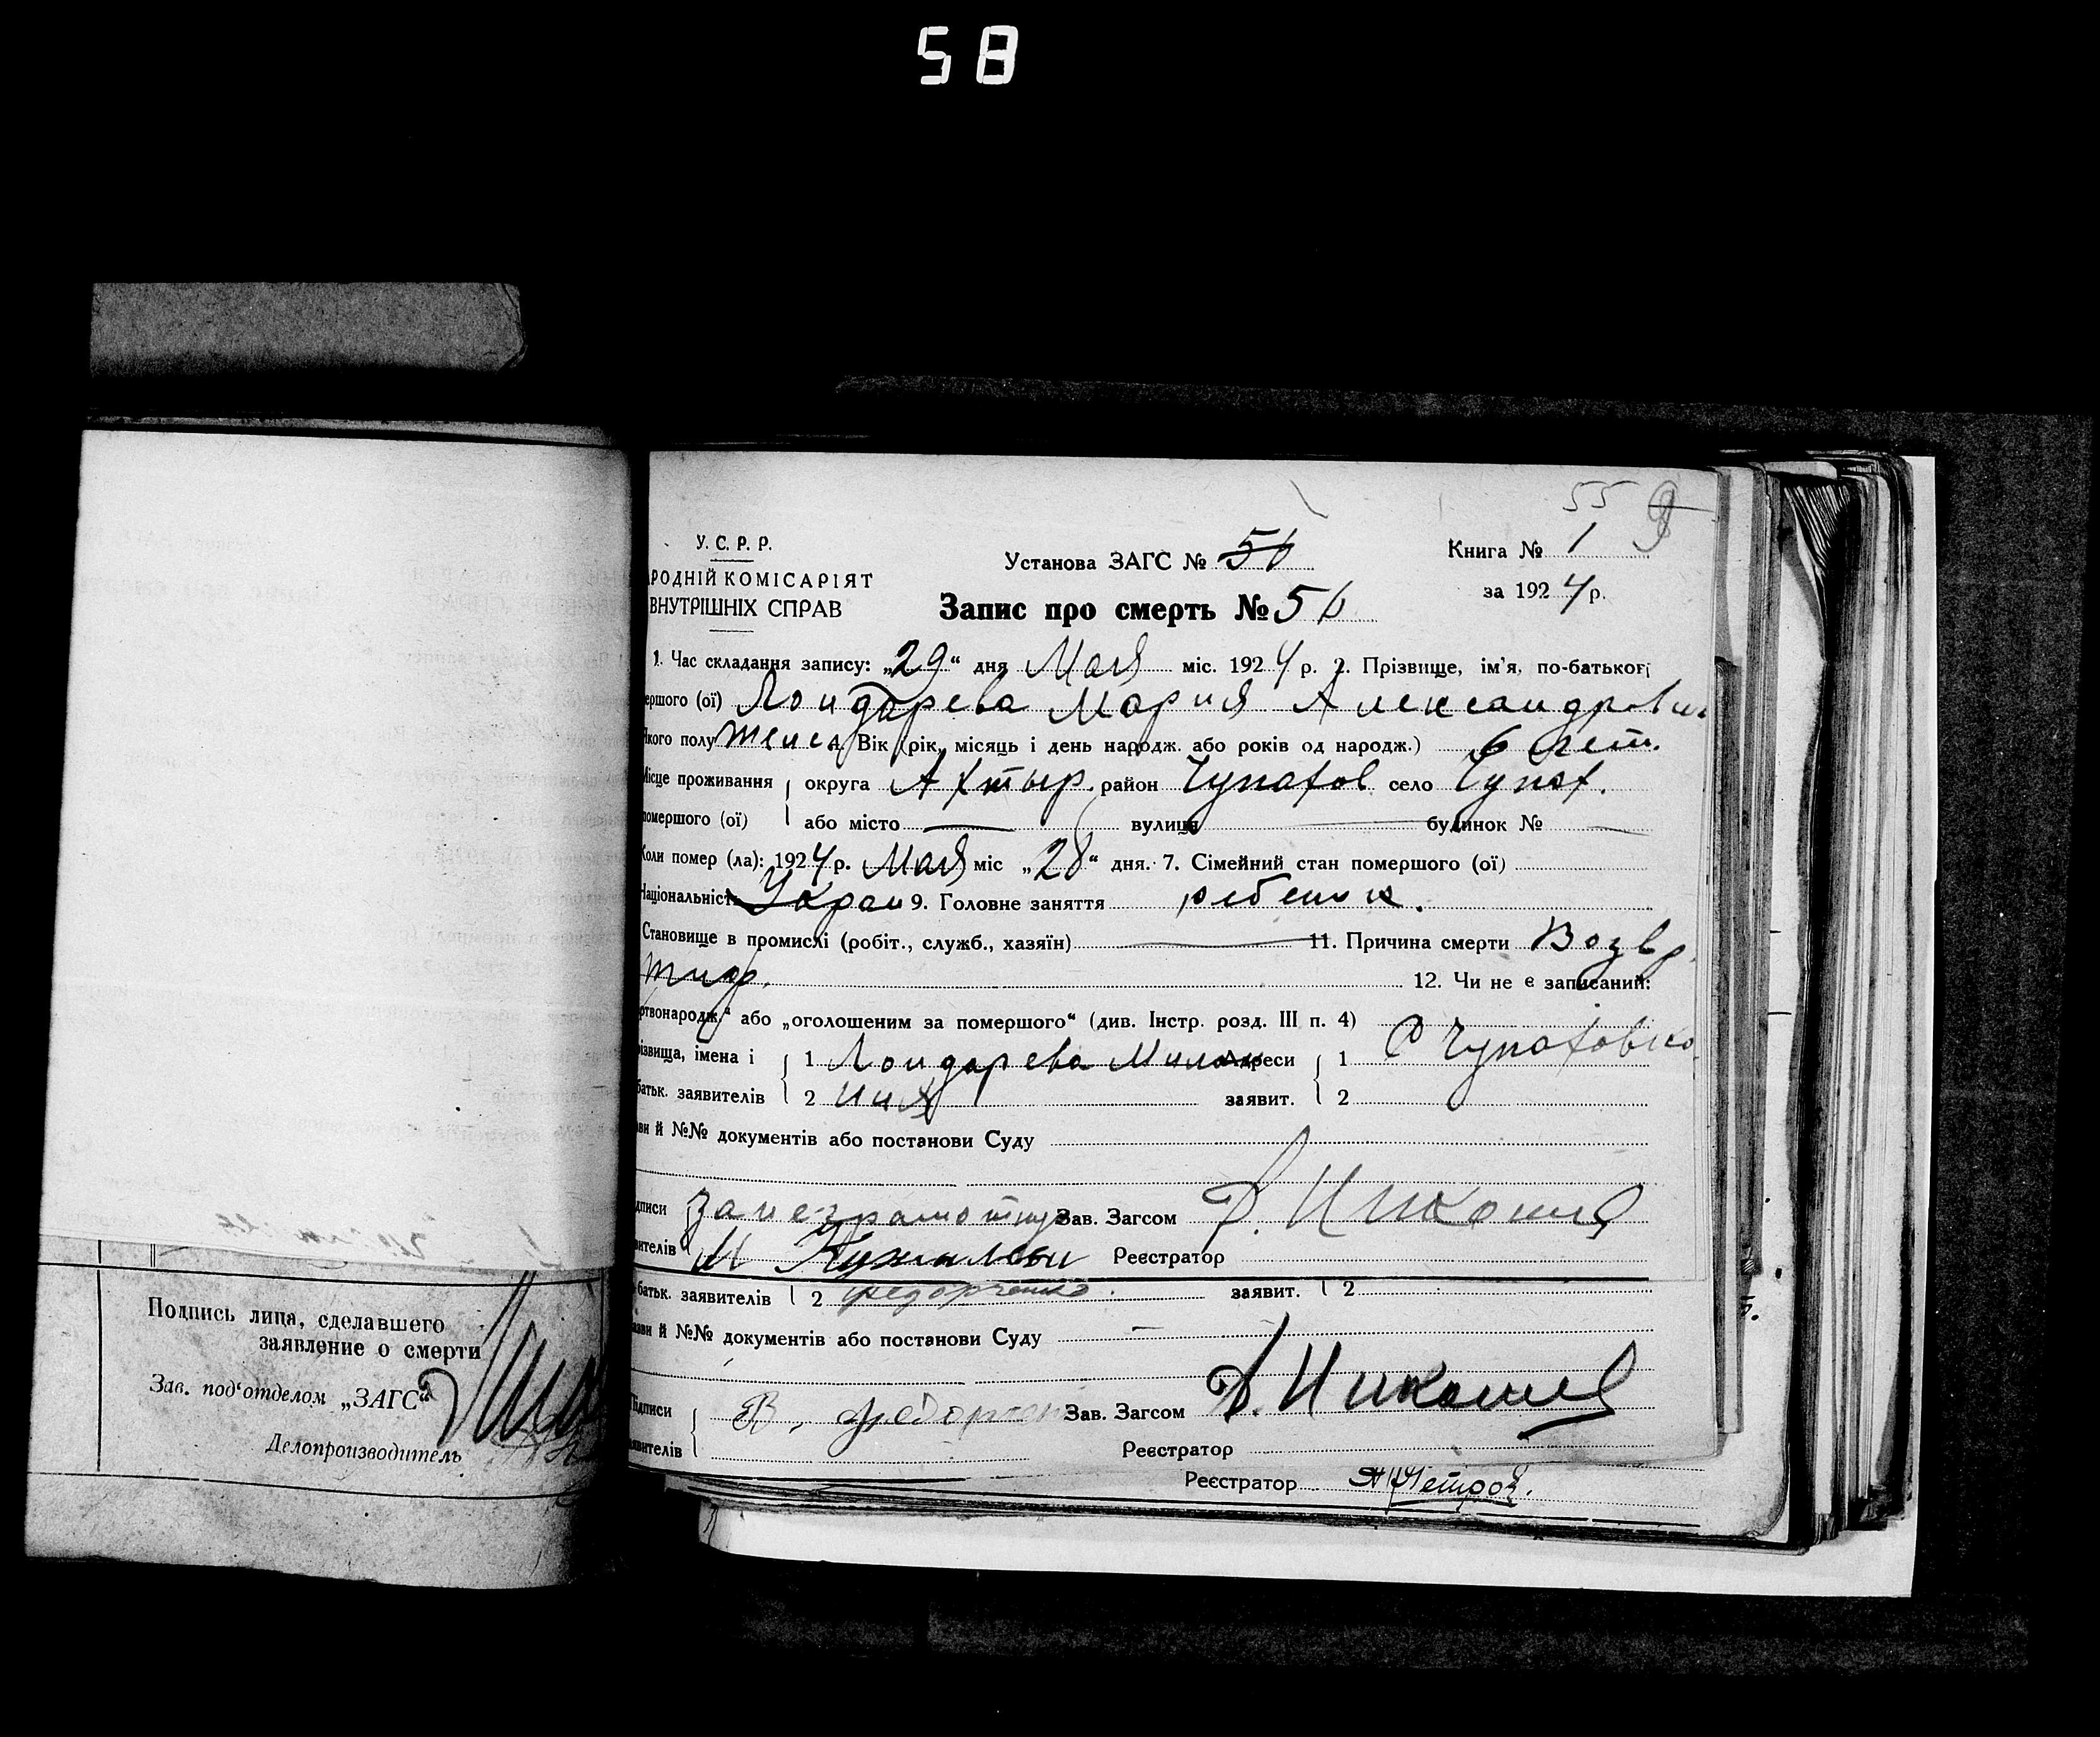 58
55
У. С. Р. Р.
РОДНІЙ КОМІСАРІЯТ
ВНУТРІШНІХ СПРАВ
Установа ЗАГС № 56
Книга № 1
за 1924 р.
Запис про смерть № 56
1. Час складання запису: „29“ дня Мая міс. 1924 р. 2. Прізвище, ім'я, по-батькові
ершого (ої) Лондарева Мария Александровн
якого полу женс 4. Вік (рік, місяць і день народж. або років од народж.) 6 лет.
Місце проживання округа Ахтыр. район Чупахов село Чупах.
помершого (ої) або місто — вулиця — будинок № —
Коли помер (ла): 1924 р. Мая міс „28“ дня. 7. Сімейний стан помершого (ої)
Національність Украи 9. Головне заняття ребенок.
Становище в промислі (робіт., служб., хазяїн) — 11. Причина смерти Возвр.
тиф. 12. Чи не є записаний:
ртвонародж.“ або „оголошеним за помершого“ (див. Інстр. розд. III п. 4)
ізвища, імена і 1 Лондарева Адреси 1 С Чупаховка
батьк. заявителів 2 заявит. 2
ви й №№ документів або постанови Суду
дписи за неграмотную Зав. Загсом
вителів М Реєстратор
батьк. заявителів 2 Федорченко. заявит. 2
зви й №№ документів або постанови Суду —
Підписи В. Федорчен Зав. Загсом
явителів Реєстратор
Реєстратор Петров.
Подпись лица, сделавшего
заявление о смерти
Зав. под'отделом „ЗАГС“
Делопроизводитель